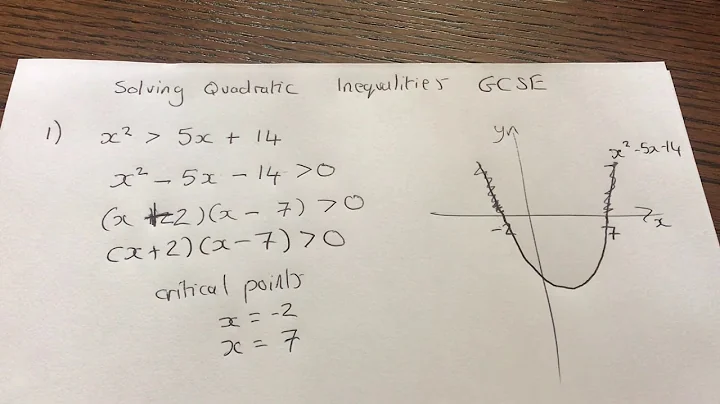 Solving Quadratic Inequalities GCSE
1) x² > 5x + 14
x² - 5x - 14 > 0
(x + 2)(x - 7) > 0
(x + 2)(x - 7) > 0
critical points
x = -2
x = 7
y
x² - 5x - 14
x
-2
7